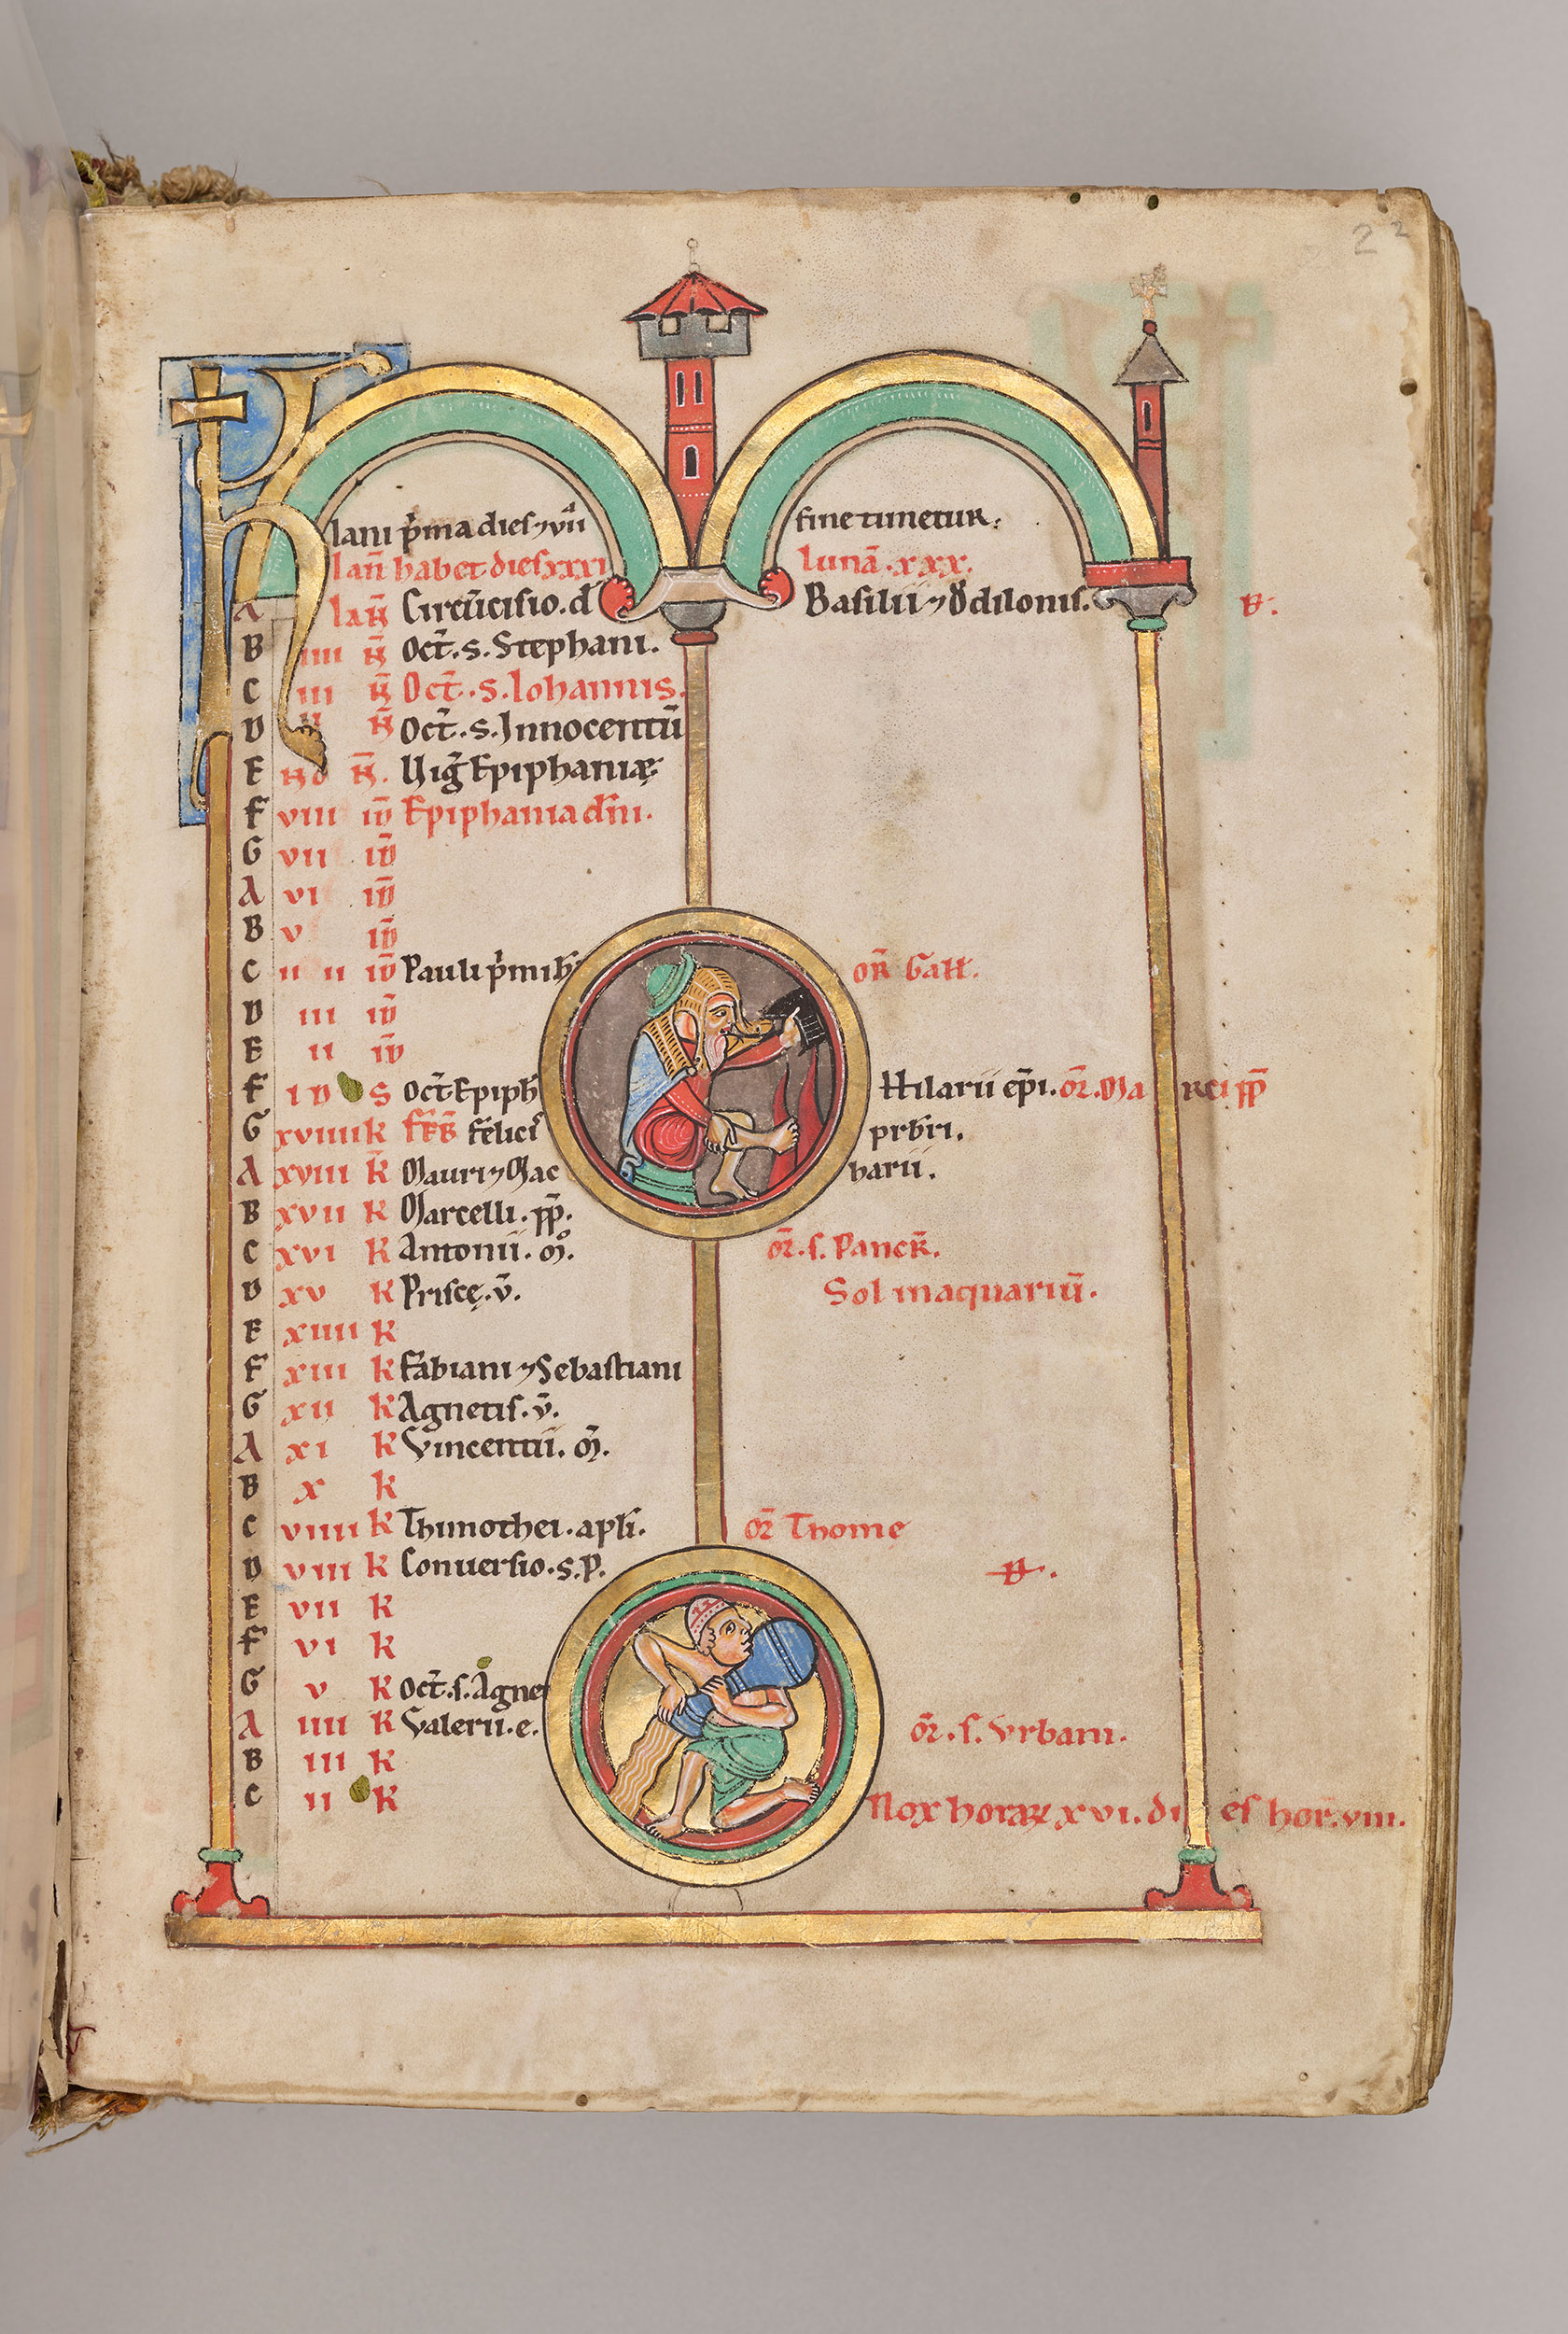 2 2
Iani p̄ma dies ⁊ vii fine timetur.
Ian̄ habet dies xxxi lunā .xxx.
A Ian̄ Circūcisio.d̄ Basilii ⁊ Odilonis.
B iiii N̄ Oct̄.s.Stephani.
C iii N̄ Oct̄.s.Iohannis.
D ii N̄ Oct̄.s.Innocentū
E N̄ Uiḡ Epiphaniæ
F viii iđ Epiphania dn̄i.
G vii iđ
A vi iđ
B v iđ
C iiii iđ Pauli p̄mi h̄ or̄ Gall.
D iii iđ
E ii iđ
F iđ s Oct̄ Epiph̄ Hilarii ep̄i. or̄. Marci pp̄
G xviiii k felicis prbr̄i.
A xviii k̄ Mauri ⁊ Mac harii.
B xvii k Marcelli.pp̄.
C xvi k Antonii.m̄. or̄.s.Pancr̄.
D xv k Priscę.v̄. Sol in aquariū.
E xiiii k
F xiii k Fabiani ⁊ Sebastiani
G xii k Agnetis.v̄.
A xi k Vincentii.m̄.
B x k
C viiii k Thimothei.apłi. or̄ Thome
D viii k Conuersio.s.p.
E vii k
F vi k
G v k Oct̄.s.Agne
A iiii k Valerii.e. or̄.s.Vrbani.
B iii k
C ii k Nox horaꝝ xvi. dies hor̄.viii.